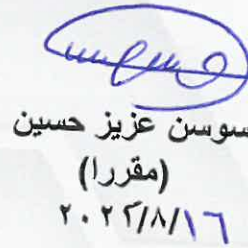 سوسن عزيز حسين
(مقررا)
٢٠٢٤/٨/١٦